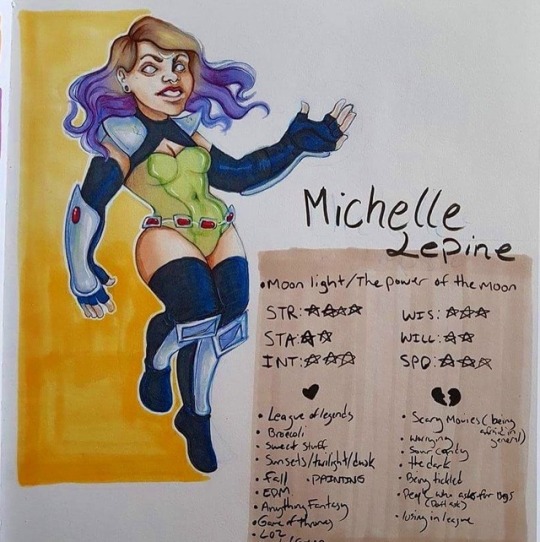 Michelle
Lepine
• Moon light/The power of the moon
STR: ☆☆☆☆
WIS: ☆☆☆
STA: ☆☆
WILL: ☆☆
INT: ☆☆☆
SPD: ☆☆☆
• League of legends
• Broccoli
• Sweet stuff
• Sunsets/twilight/dusk
• Fall • PAINTING
• EDM
• Anything Fantasy
• Game of thrones
• LOZ
• Scary Movies (being
afraid in
general)
• worrying
• Sour candy
• the dark
• Being tickled
• People who asks for
• losing in league